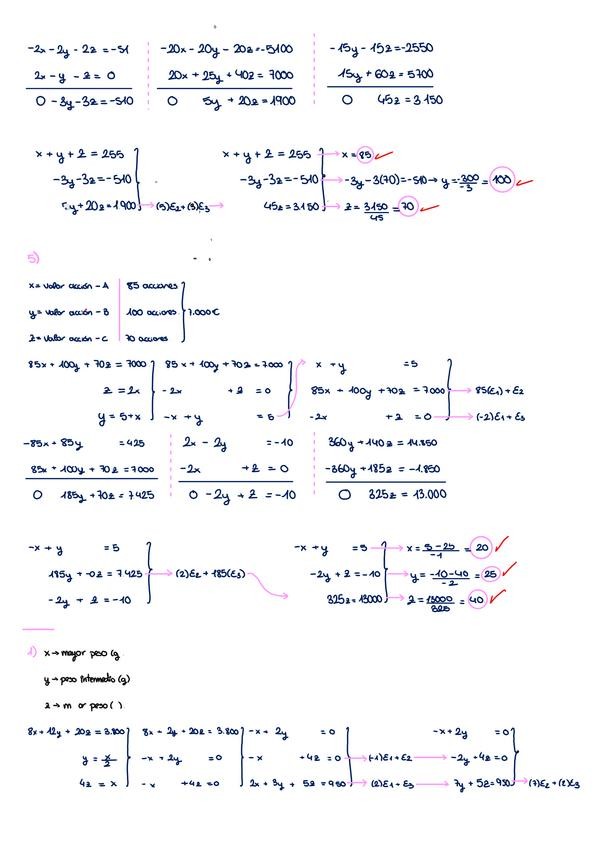 -2x-2y-2z=-51 -20x-20y-20z=-5100 -15y-15z=-2550
2x-y-z=0 20x+25y+40z=7000 15y+60z=5700
0-3y-3z=-510 0 5y+20z=1900 0 45z=3150
x+y+z=255 x+y+z=255 → x=85 ✓
-3y-3z=-510 -3y-3z=-510 → -3y-3(70)=-510→ y=-300/-3=100 ✓
5y+20z=1900 → (5)E2+(3)E3 → 45z=3150 → z=3150/45=70 ✓
5)
x=valor acción-A 85 acciones
y=valor acción-B 100 acciones 7.000€
z=valor acción-C 70 acciones
85x+100y+70z=7000 85x+100y+70z=7000 x+y=5
z=2x -2x+z=0 85x+100y+70z=7000 → 85(E1)+E2
y=5+x -x+y=5 -2x+z=0 → (-2)E1+E3
-85x+85y=425 2x-2y=-10 360y+140z=14.850
85x+100y+70z=7000 -2x+z=0 -360y+185z=-1.850
0 185y+70z=7425 0-2y+z=-10 0 325z=13.000
-x+y=5 -x+y=5 → x=5-25/-1=20 ✓
185y+70z=7425 → (2)E2+185(E3) -2y+z=-10 → y=-10-40/-2=25 ✓
-2y+z=-10 325z=13000 → z=13000/325=40 ✓
1) x→mayor peso (g
y→peso intermedio (g)
z→m or peso ( )
8x+12y+20z=3.800 8x+2y+20z=3.800 -x+2y=0 -x+2y=0
y=x/2 -x+2y=0 -x+4z=0 → (-1)E1+E2 → -2y+4z=0
4z=x -x+4z=0 2x+3y+5z=950 → (2)E1+E3 → 7y+5z=950 → (7)E2+(2)E3